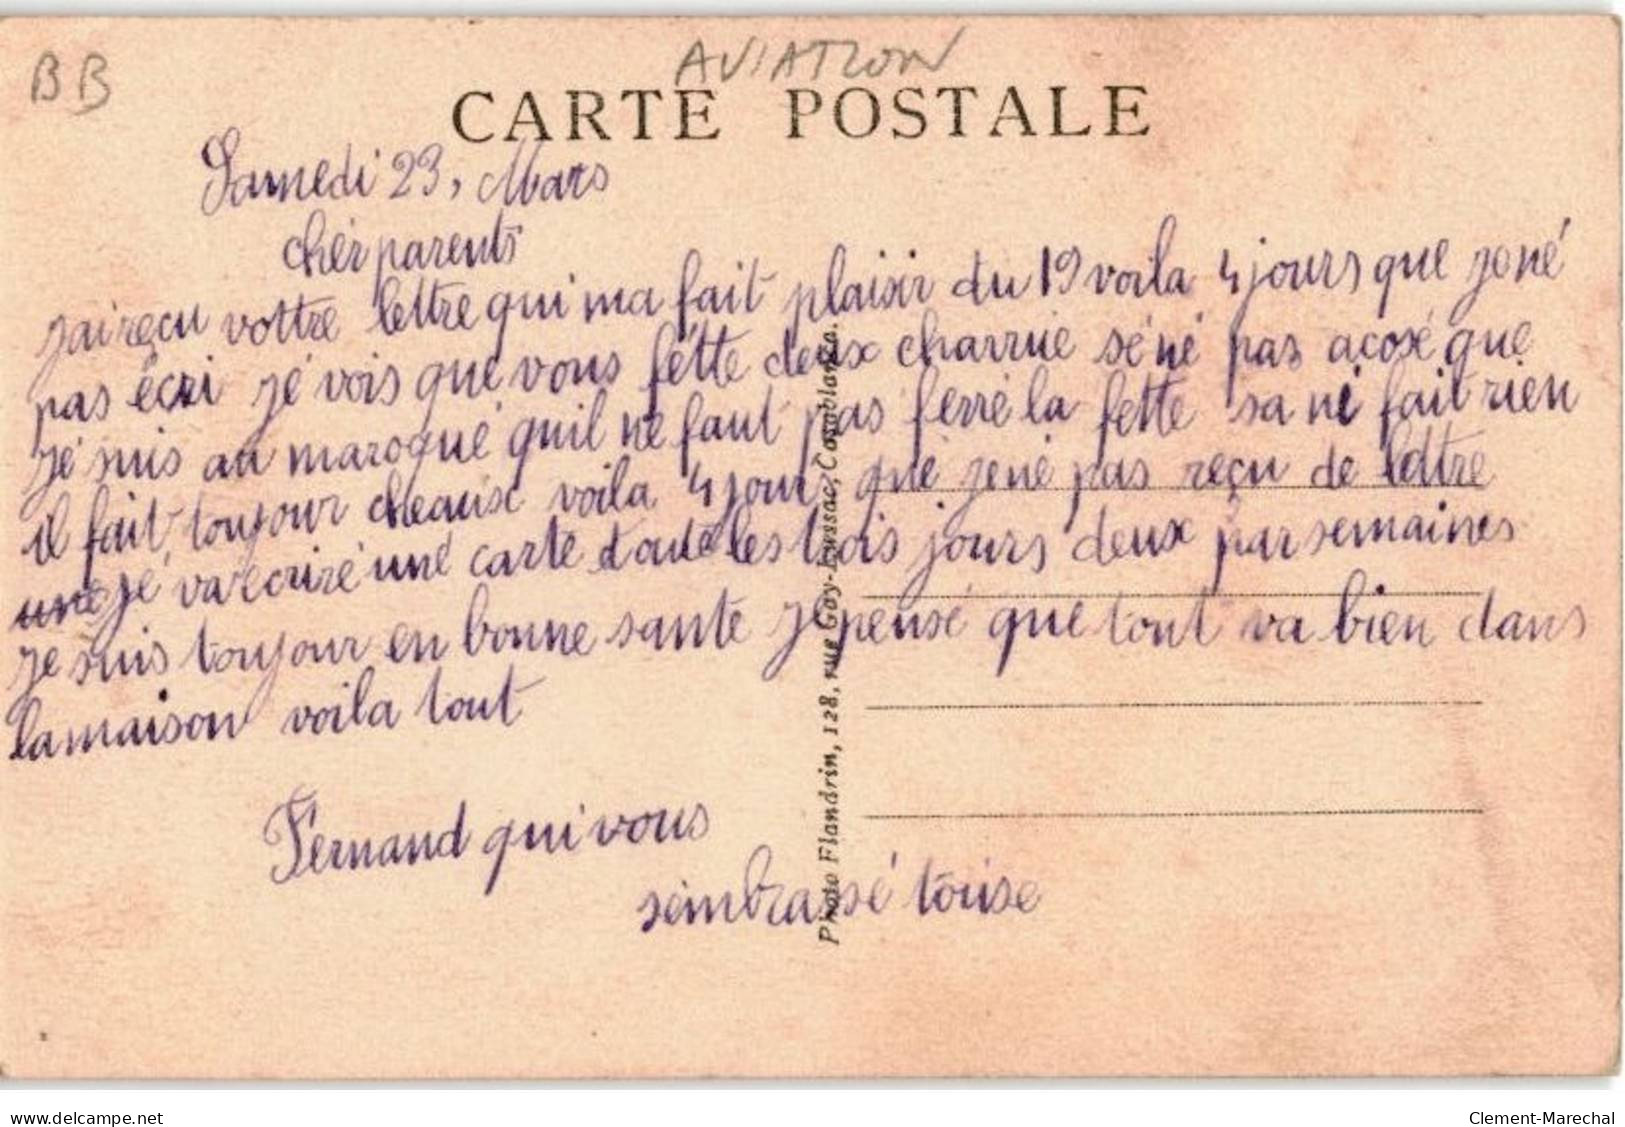 BB
AVIATION
CARTE POSTALE
Samedi 23, Mars
chér parents
jai reçu vottre lettre qui ma fait plaisir du 19 voila 4 jours que jené
pas écri jé vois qué vous fétte deux charrue séné pas acosé que
jé suis au maroqué quil né faut pas ferré la fette sa né fait rien
il fait toujour cheaux voila 4 jour qué jené pas reçu de lettre
une jé va écriré uné carte toute les trois jours deux par semaines
je suis toujour en bonne sante je pensé que tout va bien dans
la maison voila tout
Fernand qui vous
sémbrassé touse
Photo Flandrin, 128, rue Gay-Lussac, Casablanca.
delcampe.net
Clement-Marechal